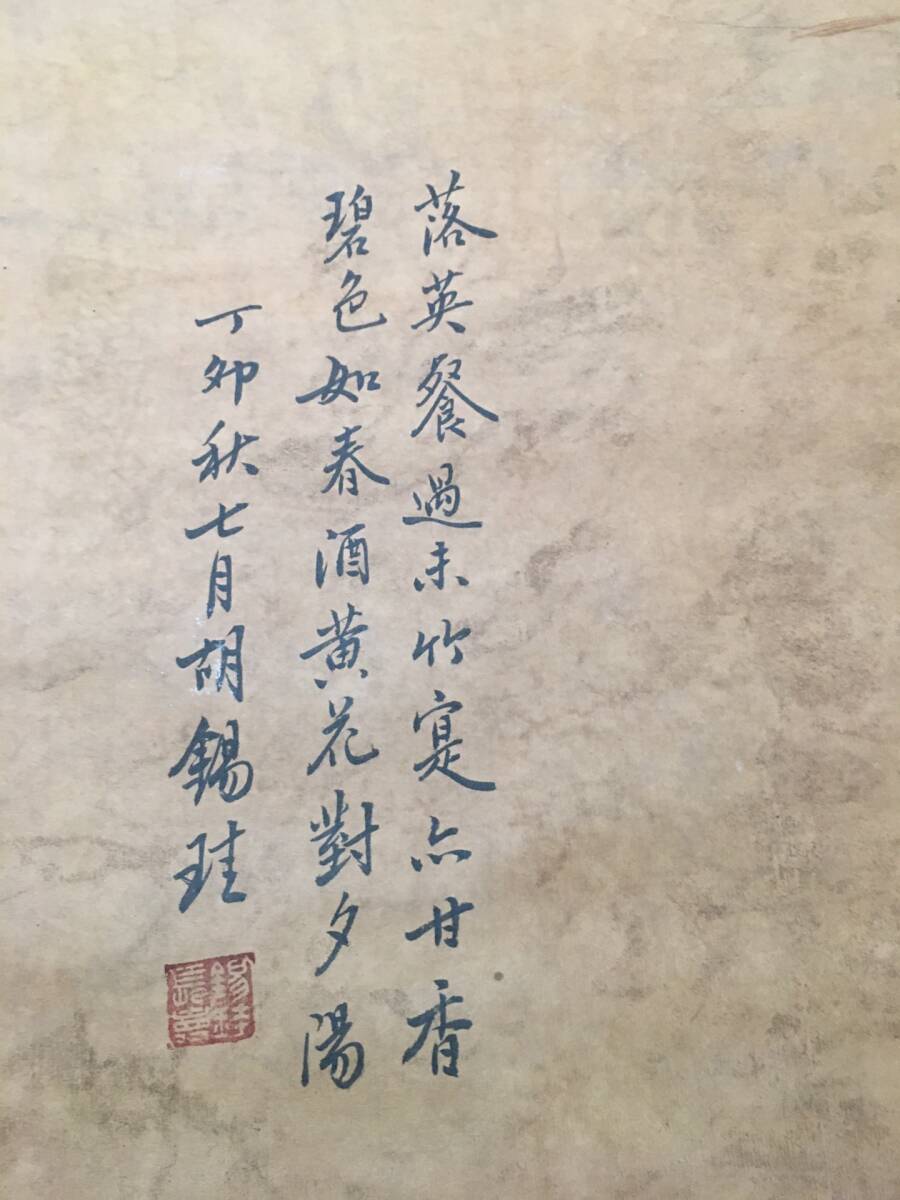 落英餐過未竹寔亦甘香
碧色如春酒黄花對夕陽
丁卯秋七月胡錫珪